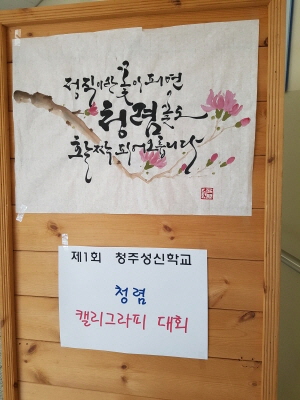 정직이란 꽃이 피면
청렴 꽃도
활짝 피어오릅니다
제1회 청주성신학교
청렴
캘리그라피 대회